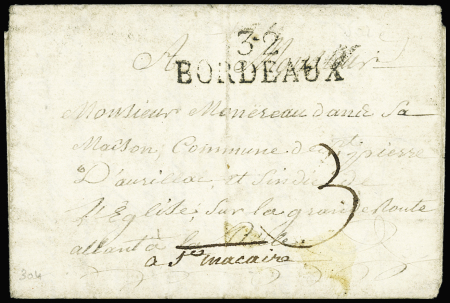 32
A Monsieur
BORDEAUX
Monsieur Monereau dans Sa
Maison, Commune de St pierre
D'aurillac, et Sindic de
l'Eglise, Sur la grande Route
allant a la
3
a St macaire
304